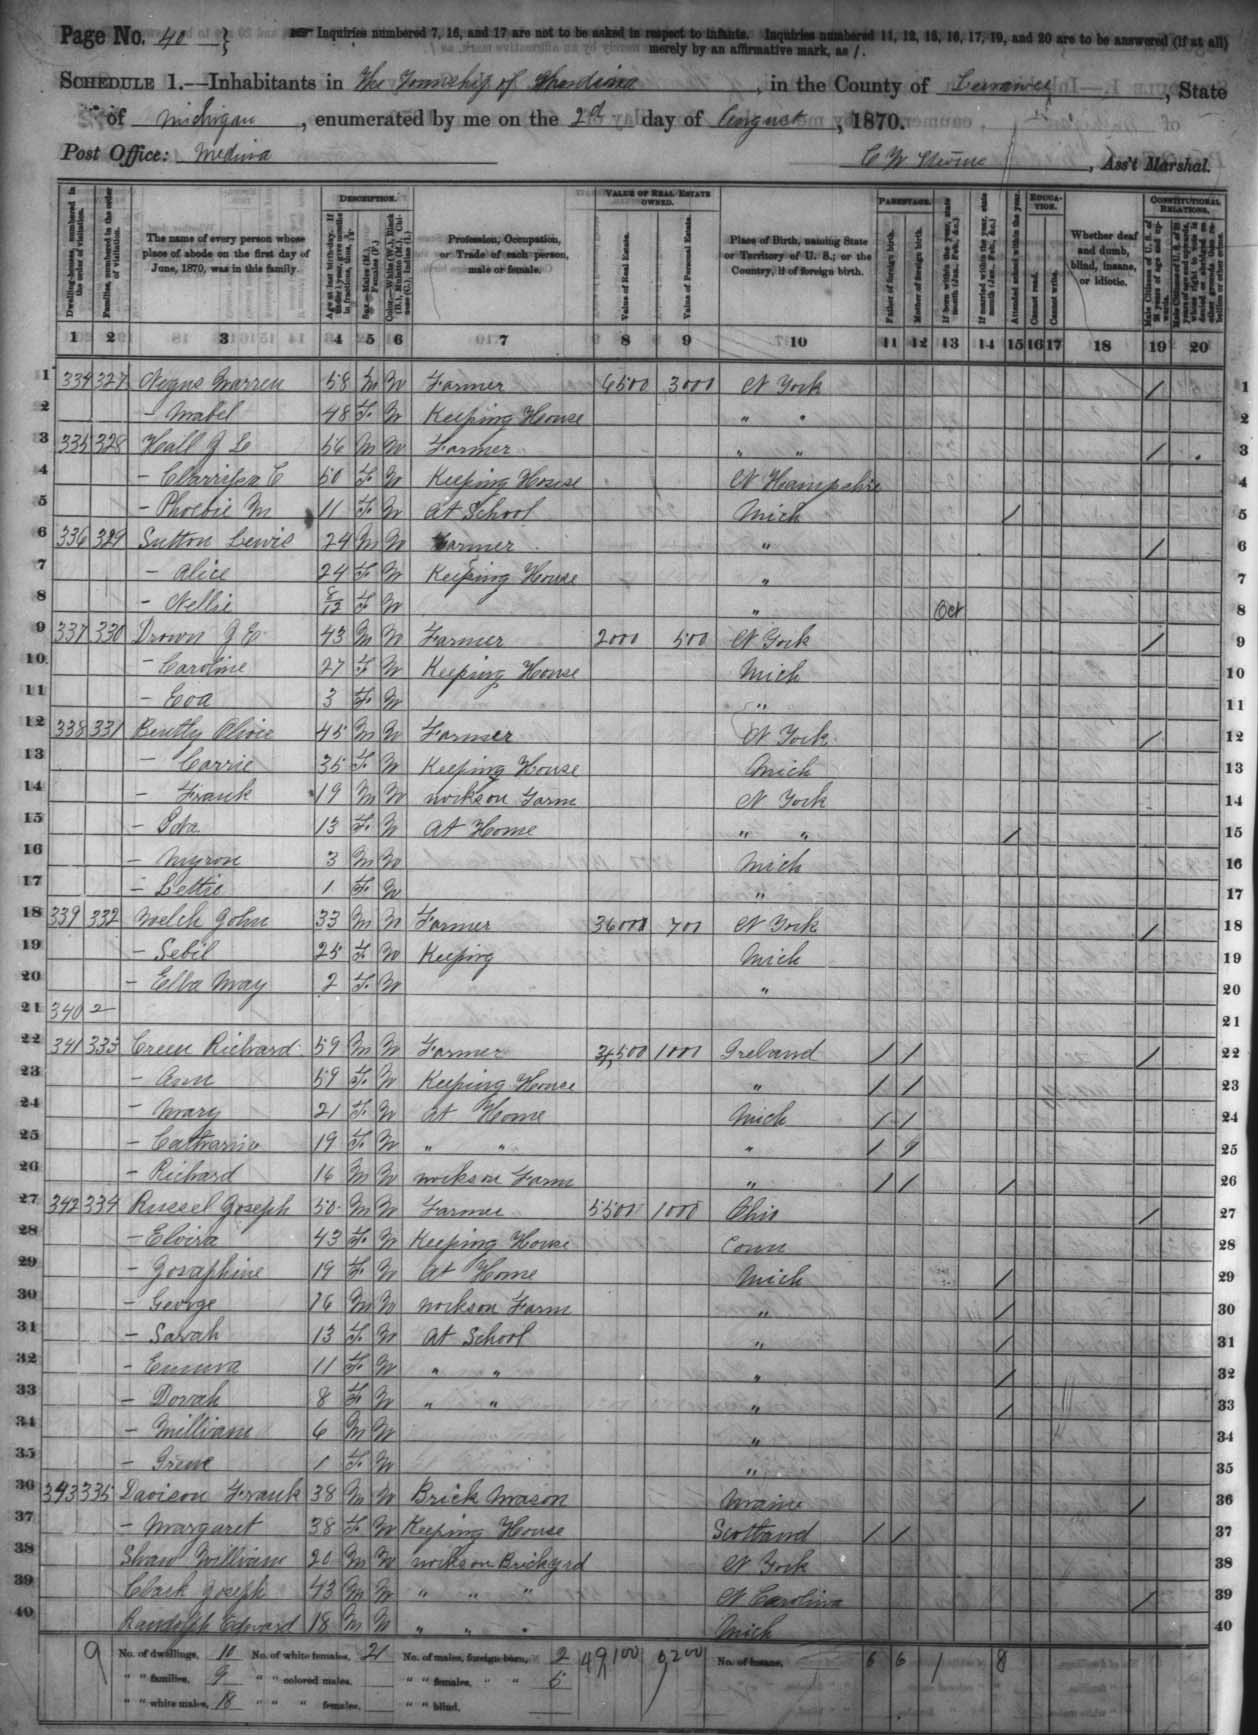 Page No. 40
Inquiries numbered 7, 16, and 17 are not to be asked in respect to infants. Inquiries numbered 11, 12, 15, 16, 17, 19, and 20 are to be answered (if at all)
merely by an affirmative mark, as /.
SCHEDULE 1.—Inhabitants in The Township of Medina, in the County of Lenawee, State
of Michigan, enumerated by me on the 2d day of August, 1870.
Post Office: Medina
C W, Ass't Marshal.
Dwelling-houses, numbered in the order of visitation.
Families, numbered in the order of visitation.
The name of every person whose place of abode on the first day of June, 1870, was in this family.
DESCRIPTION.
Age at last birth-day. If under 1 year, give months in fractions, thus, 3/12
Sex.—Males (M.), Females (F.)
Color.—White (W.), Black (B.), Mulatto (M.), Chinese (C.), Indian (I.)
Profession, Occupation, or Trade of each person, male or female.
VALUE OF REAL ESTATE OWNED.
Value of Real Estate.
Value of Personal Estate.
Place of Birth, naming State or Territory of U. S.; or the Country, if of foreign birth.
PARENTAGE.
Father of foreign birth.
Mother of foreign birth.
If born within the year, state month (Jan., Feb., &c.)
If married within the year, state month (Jan., Feb., &c.)
Attended school within the year.
EDUCATION.
Cannot read.
Cannot write.
Whether deaf and dumb, blind, insane, or idiotic.
CONSTITUTIONAL RELATIONS.
Male Citizens of U. S. of 21 years of age and upwards.
1 2 3 4 5 6 7 8 9 10 11 12 13 14 15 16 17 18 19 20
1 334 327 Negus Warren 58 M W Farmer 6500 3000 N York / 1
2 – Mabel 48 F W Keeping House " " 2
3 335 328 Hall J L 56 M W Farmer " " / 3
4 – Clarrissa C 50 F W Keeping House N Hampshire 4
5 – Phoebie M 11 F W At School Mich / 5
6 336 329 Sutton Lewis 24 M W Farmer " / 6
7 – Alice 24 F W Keeping House " 7
8 – Nellie 8/12 F W " Oct 8
9 337 330 Drown J E 43 M W Farmer 2000 500 N York / 9
10 – Caroline 27 F W Keeping House Mich 10
11 – Eva 3 F W " 11
12 338 331 Bently 45 M W Farmer N York / 12
13 – Carrie 35 F W Keeping House Mich 13
14 – Frank 19 M W works on Farm N York 14
15 – Ida 13 F W At Home " " / 15
16 – Myron 3 M W Mich 16
17 – Lettie 1 F W " 17
18 339 332 Welch John 33 M W Farmer 36000 700 N York / 18
19 – Sebil 25 F W Keeping Mich 19
20 – Elba May 2 F W " 20
21 340 2 21
22 341 333 Creen Richard 59 M W Farmer 500 1000 Ireland / / / 22
23 – Ann 59 F W Keeping House " / / 23
24 – Mary 21 F W at Home Mich / / 24
25 – Catharine 19 F W " " " / 25
26 – Richard 16 M W works on Farm " / / / 26
27 342 334 Russel Joseph 50 M W Farmer 5500 1000 Ohio / 27
28 – Elvira 43 F W Keeping House Conn 28
29 – Josaphine 19 F W At Home Mich / 29
30 – George 16 M W works on Farm " / 30
31 – Sarah 13 F W At School " / 31
32 – Emma 11 F W " " " / 32
33 – Dorah 8 F W " " " / 33
34 – William 6 M W " 34
35 – 1 F W " 35
36 343 335 Davison Frank 38 M W Brick Mason Maine / 36
37 – Margaret 38 F W Keeping House Scotland / / 37
38 Shaw William 20 M W works on Brickyrd N York 38
39 Clark Joseph 43 M W " " " N Carolina / 39
40 Randolph Edward 18 M W " " " Mich 40
9 No. of dwellings, 10 No. of white females, 21 No. of males, foreign born, 2 49,100 9200 No. of insane, 6 6 1 8
" " families, 9 " " colored males, " " females, " " 5
" " white males, 18 " " " females, " " blind,